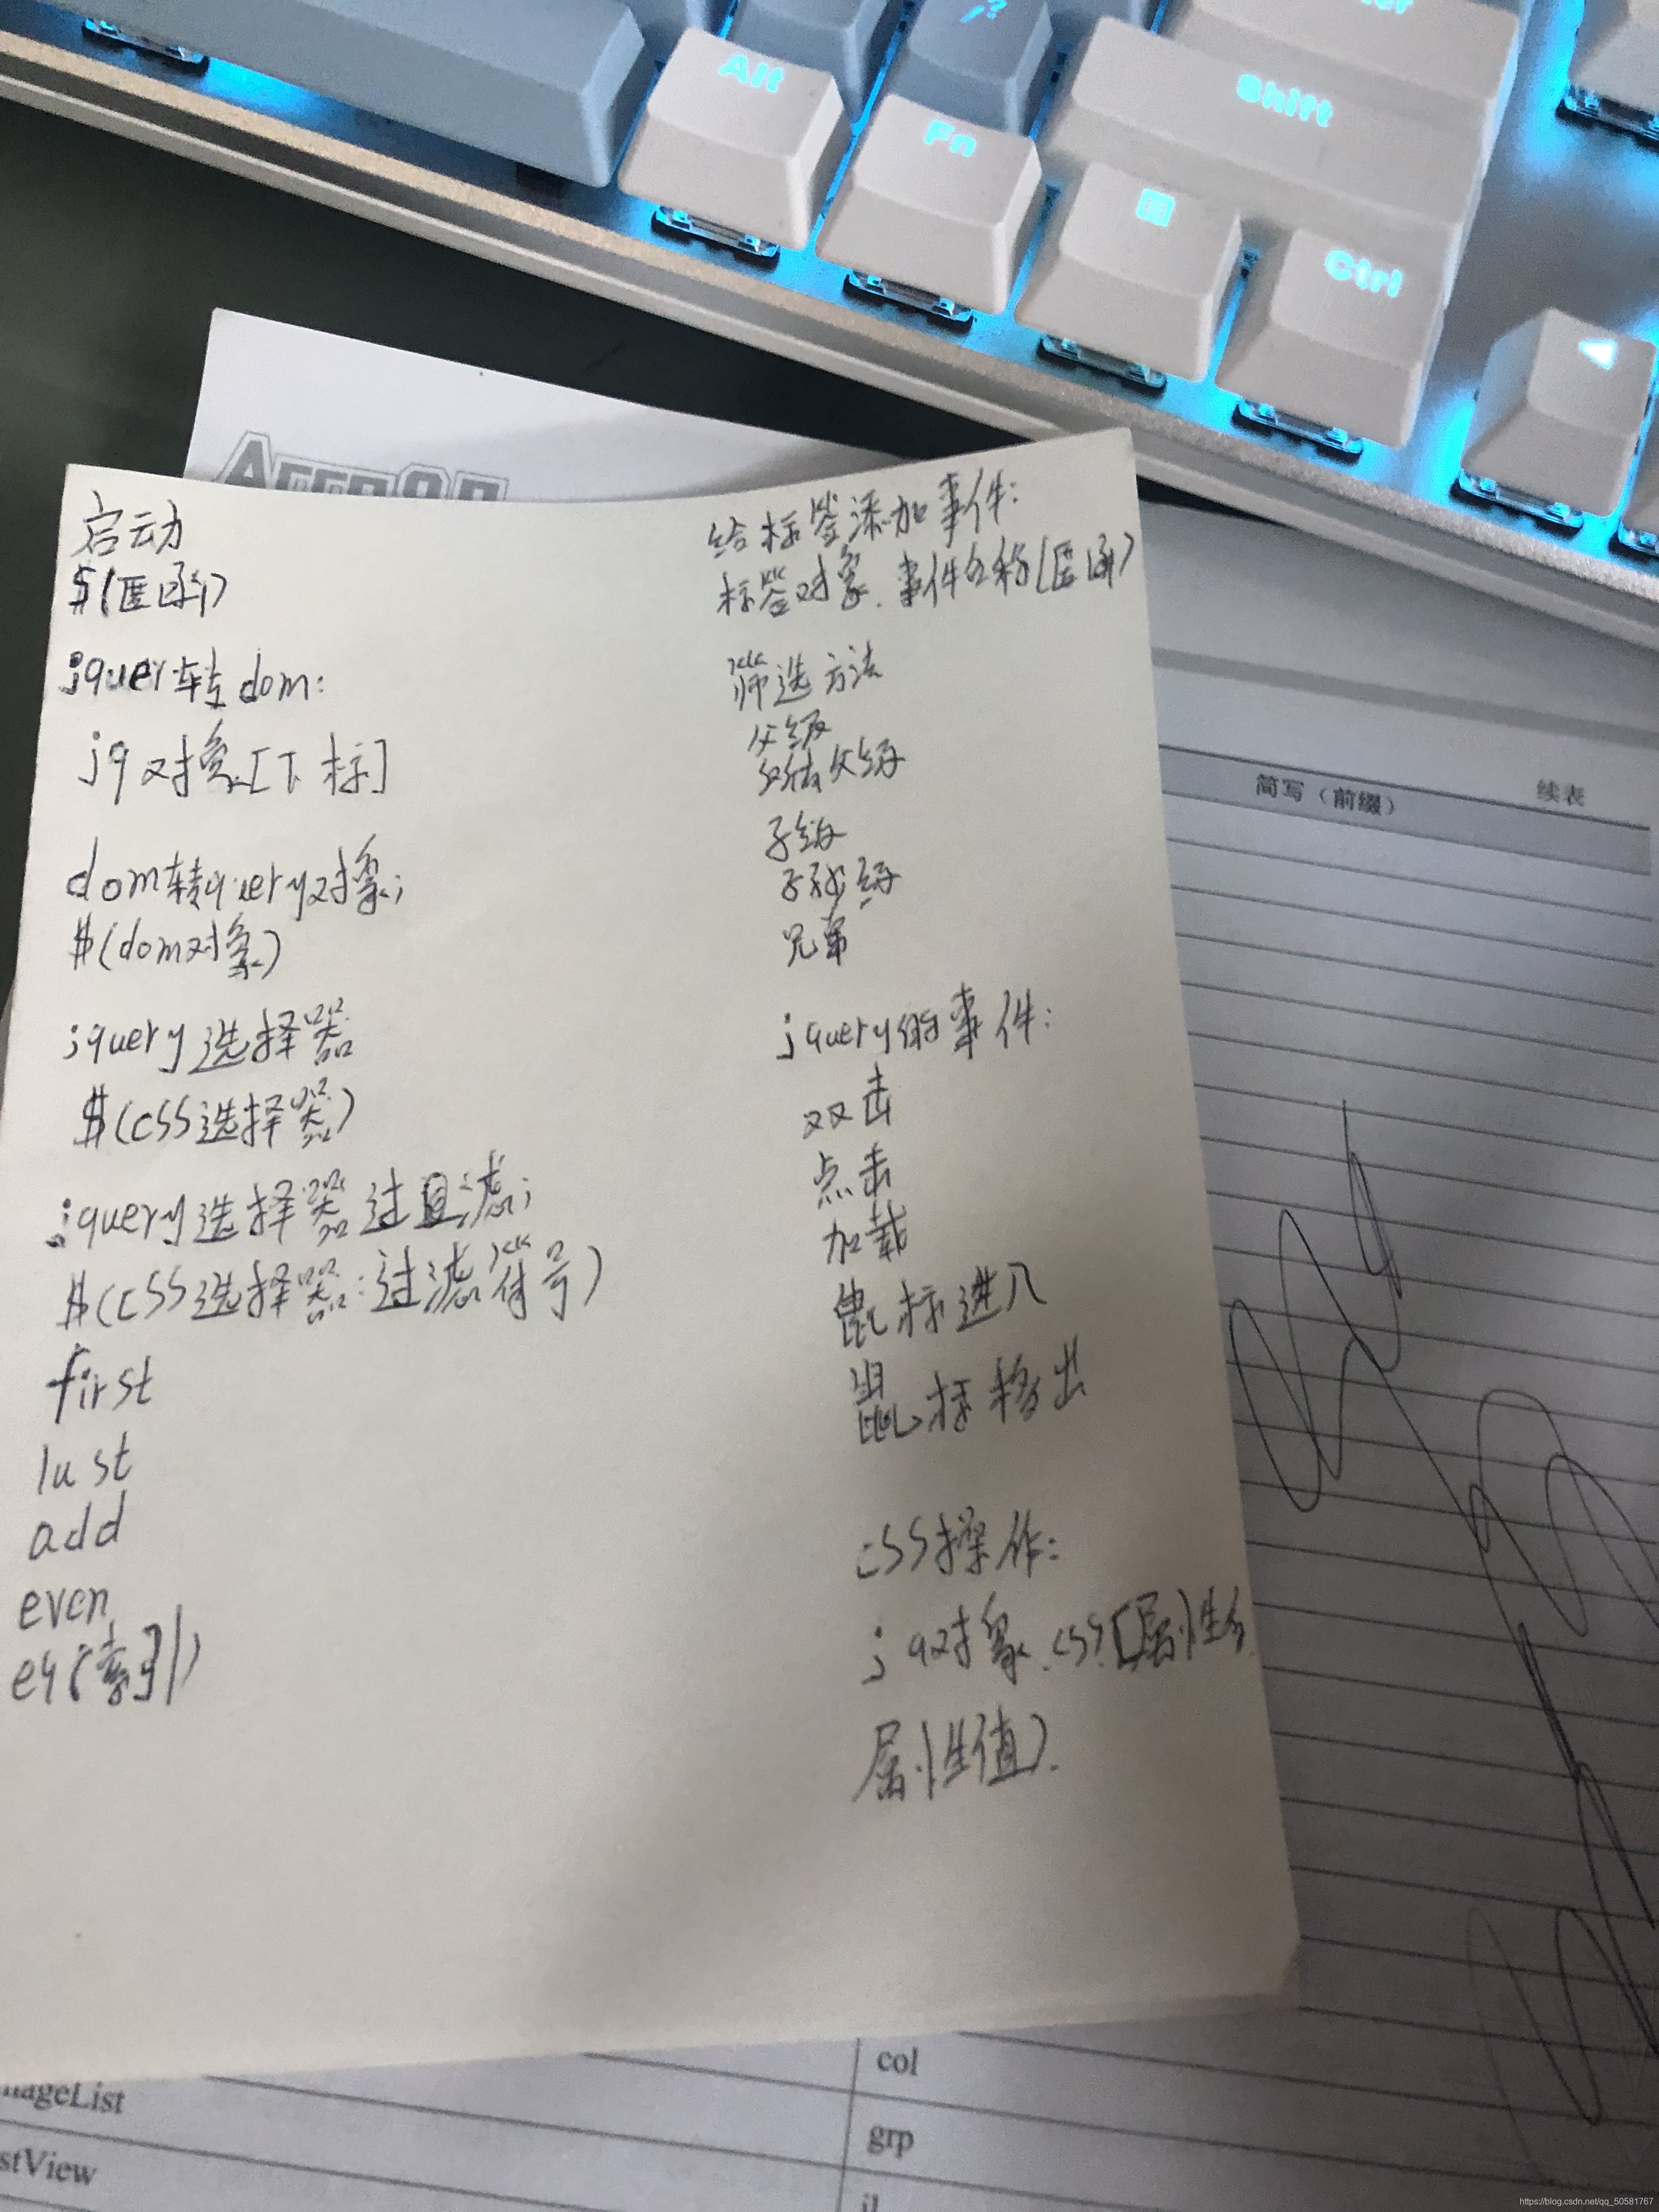 Alt
Fn
Shift
Ctrl
启动
$(匿函)
jquer转dom:
jq对象[下标]
dom转query对象;
$(dom对象)
jquery选择器
$(css选择器)
jquery选择器过滤;
$(css选择器:过滤符号)
first
lust
add
even
eq(索引)
给标签添加事件:
标签对象.事件名称(匿函)
筛选方法
父级
父级
子级
子孙级
兄弟
jquery的事件:
双击
点击
加载
鼠标进入
鼠标移出
css操作:
jq对象.css(属性名
属性值).
简写（前缀）
续表
col
grp
il
ageList
stView
https://blog.csdn.net/qq_50581767